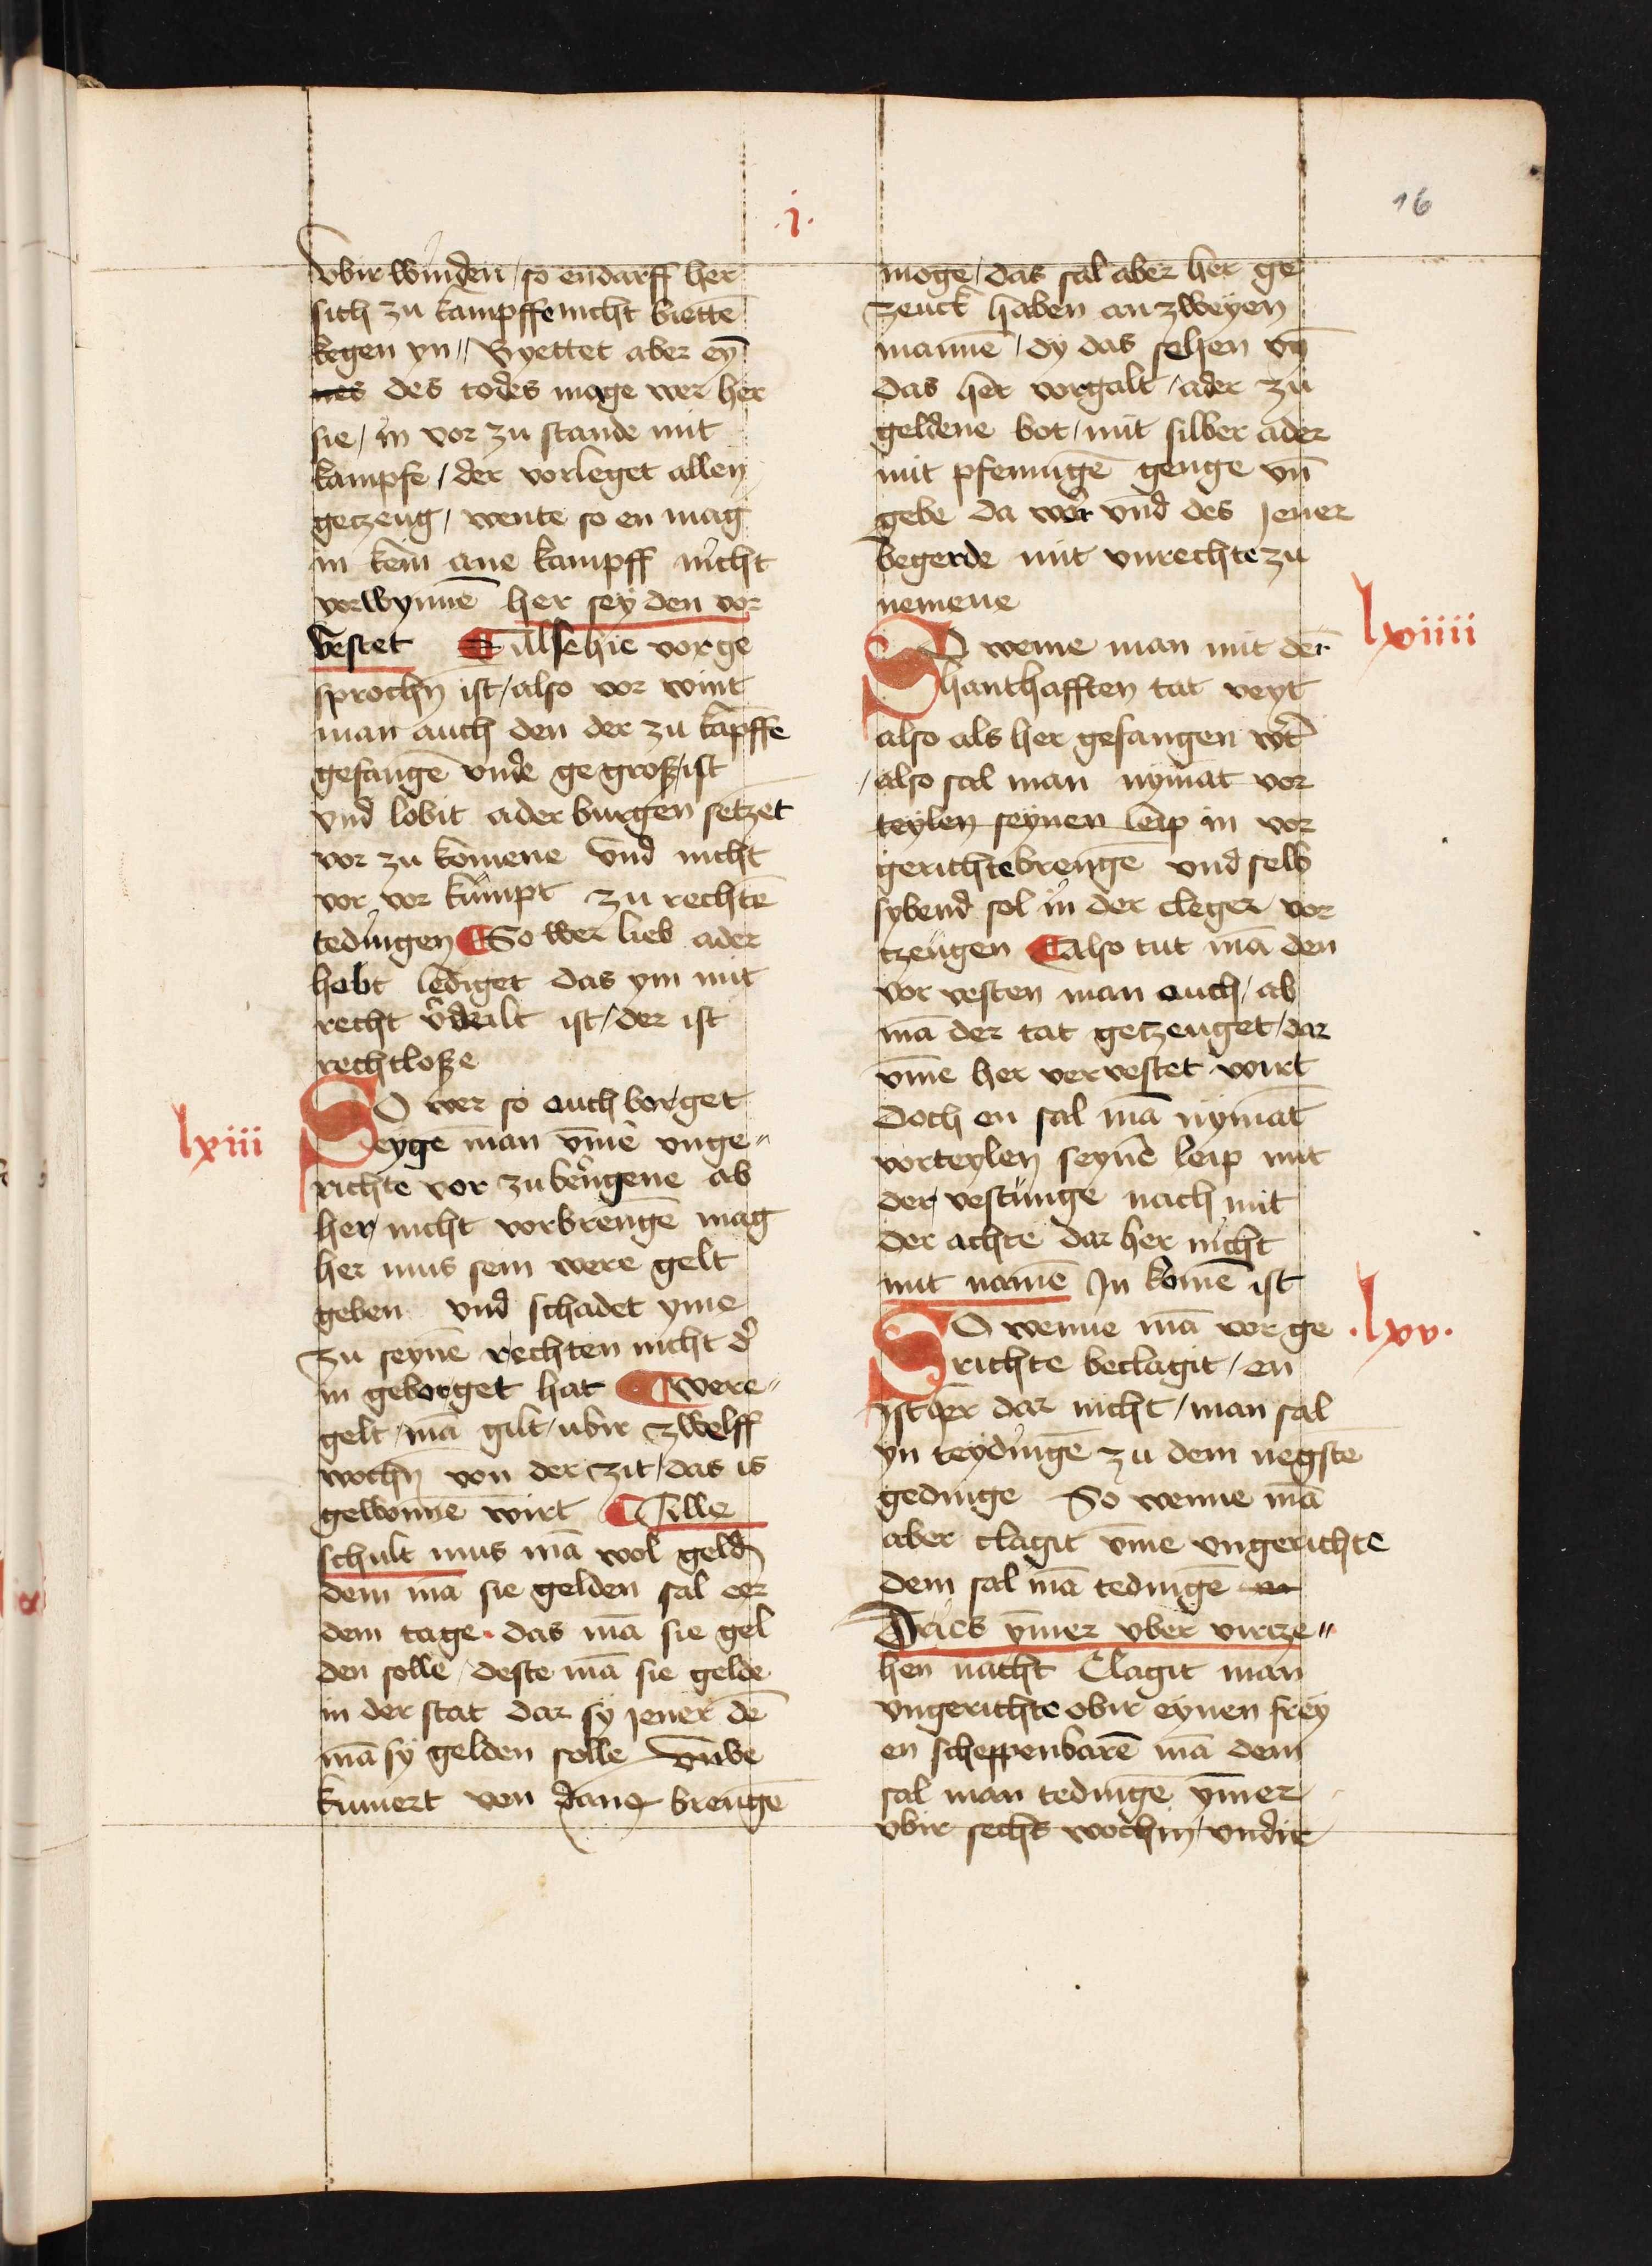 .i.
16
vbir winden / so endarff her
sich zu kampffe nicht biettē
kegen yn // Byettet aber eȳ
nes des todes moge wer her
sie / in vor zu stande mit
kampfe / der vorleget allen
getzeug / wente so en mag
in kein ane kampff nicht
vorwynnē her sey den vor
vestet Alse hie vor ge
sprochn̄ ist / also vor wint
man auch den der zu kāpffe
gefangē vnde gegroß / ist
vnd lobit ader burgen setzet
vor zu komene vnd nicht
vor vor kumpt zu rechtē
tedingen So wer lieb ader
hobt lediget das ym mit
recht v̄deilt ist / der ist
rechtloße
lxiii
SO wer so auch borget
eyge man vm̄e vnge //
richte vor zu bengene ab
her nicht vorbrengē mag
her mus sein were gelt
geben vnd schadet yme
zu seynē rechten nicht d̄
in geborget hat were //
gelt / mā gilt / ubir zwelff
wochn̄ von der zit / das is
gewonnē wirt Alle
schult mus mā wol geldn̄
dem mā sie gelden sal eer
dem tage. das mā sie gel
den solle / deste mā sie gelde
in der stat dar sy jener dē
mā sy gelden solle vnbe
kumert von dane brengē
moge / das sal aber her ge
zeuck haben an zweyen
mannē / dy das sehen vn̄
das her vorgalt / ader zu
geldene bot / mit silber ader
mit pfennigē genge vn̄
gebe da wer vnd des jener
begerde mit vnrechte zu
nemene
lxiiii
SO wenne man mit der
hanthafften tat veyt
also als her gefangen wt̄
/ also sal man nymāt vor
teylen seynen leip in vor
gerichte brengē vnd selb
sybend sol in der cleger vor
tzeugen Also tut mā den
vor vesten man auch / ab
mā der tat getzeuget / dar
vm̄e her vervestet wirt
doch en sal mā nymāt
vorteylen seynē leip mit
der vestunge nach mit
der achte dar her nicht
mit namē In komē ist
.lxv.
SO wenne mā vor ge
richte beclagit / en
ist er dar nicht / man sal
yn teydingē zu dem negstē
gedinge So wenne mā
aber clagit vm̄e vngerichte
dem sal mā tedingē
Dries ym̄er vber virtze //
hen nacht Clagit man
vngerichte obir eynen frey
en scheppenbarē mā dem
sal man tedingē ym̄er
vbir sechs wochin / vndir